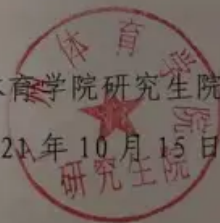 体育学院研究生院
21年10月15日
体育学院
研究生院